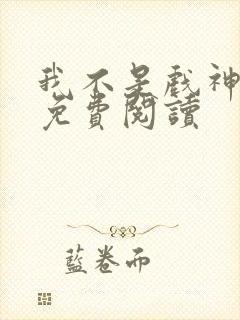 我不是戲神
免費閱讀
藍卷而